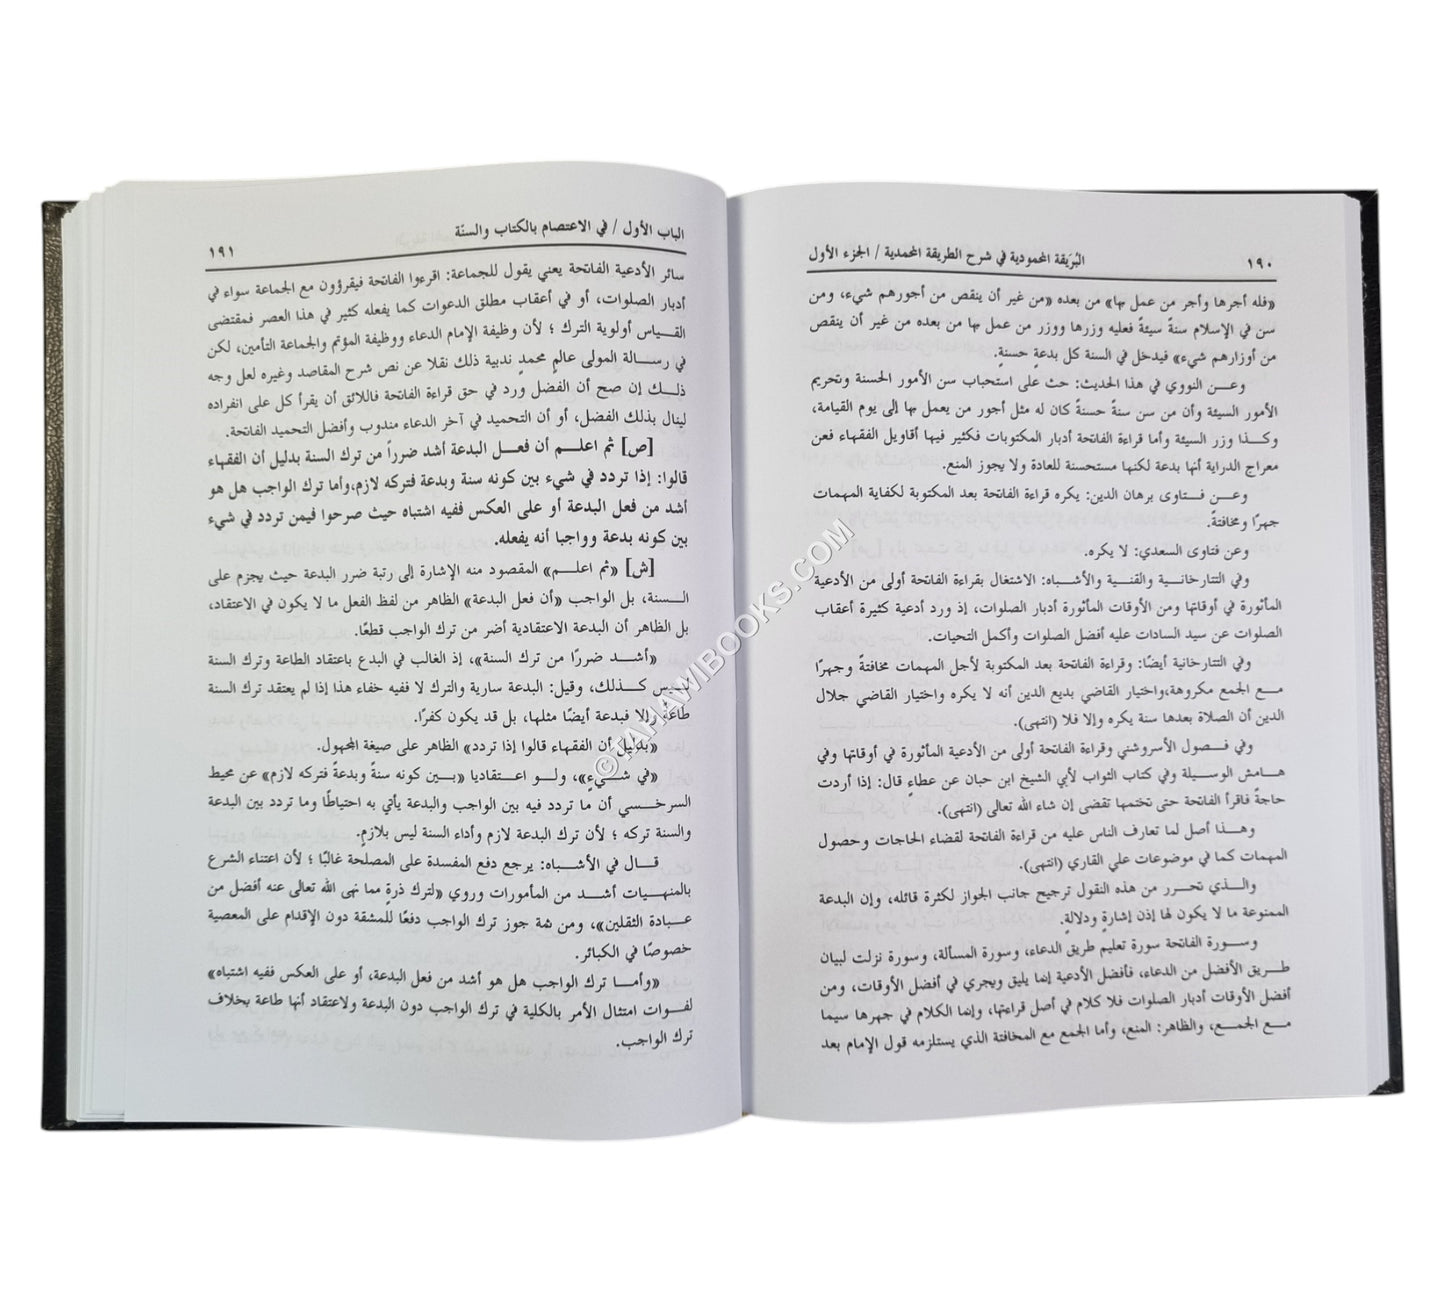 ١٩٠ البُرَيقة المحمودية في شرح الطريقة المحمدية / الجزء الأول
«فله أجرها وأجر من عمل بها» من بعده «من غير أن ينقص من أجورهم شيء، ومن
سن في الإسلام سنةً سيئةً فعليه وزرها ووزر من عمل بها من بعده من غير أن ينقص
من أوزارهم شيء» فيدخل في السنة كل بدعةٍ حسنةٍ.
وعـــن النووي في هذا الحديث: حث على استحباب سن الأمور الحسنة وتحريم
الأمور السيئة وأن من سن سنةً حسنةً كان له مثل أجور من يعمل بها إلى يوم القيامة،
وكـــذا وزر السيئة وأما قراءة الفاتحة أدبار المكتوبات فكثير فيها أقاويل الفقهاء فعن
معراج الدراية أنها بدعة لكنها مستحسنة للعادة ولا يجوز المنع.
وعـــن فـــتاوى برهان الدين: يكره قراءة الفاتحة بعد المكتوبة لكفاية المهمات
جهرًا ومخافتةً.
وعن فتاوى السعدي: لا يكره.
وفي التتارخانـــية والقنية والأشـــباه: الاشتغال بقراءة الفاتحة أولى من الأدعية
المأثورة في أوقاتها ومن الأوقات المأثورة أدبار الصلوات، إذ ورد أدعية كثيرة أعقاب
الصلوات عن سيد السادات عليه أفضل الصلوات وأكمل التحيات.
وفي التتارخانية أيضًا: وقراءة الفاتحة بعد المكتوبة لأجل المهمات مخافتةً وجهرًا
مـــع الجمع مكروهة،واختيار القاضي بديع الدين أنه لا يكره واختيار القاضي جلال
الدين أن الصلاة بعدها سنة يكره وإلا فلا (انتهى).
وفي فـــصول الأسروشني وقراءة الفاتحة أولى من الأدعية المأثورة في أوقاتها وفي
هـامش الوسيلة وفي كتاب الثواب لأبي الشيخ ابن حبان عن عطاءٍ قال: إذا أردت
حاجةً فاقرأ الفاتحة حتى تختمها تقضى إن شاء الله تعالى (انتهى).
وهـــذا أصل لما تعارف الناس عليه من قراءة الفاتحة لقضاء الحاجات وحصول
المهمات كما في موضوعات علي القاري (انتهى).
والـــذي تحـــرر من هذه النقول ترجيح جانب الجواز لكثرة قائله، وإن البدعة
الممنوعة ما لا يكون لها إذن إشارةٍ ودلالةٍ.
وســـورة الفاتحة سورة تعليم طريق الدعاء، وسورة المسألة، وسورة نزلت لبيان
طـــريق الأفضل من الدعاء، فأفضل الأدعية إنما يليق ويجري في أفضل الأوقات، ومن
أفضل الأوقات أدبار الصلوات فلا كلام في أصل قراءتها، وإنما الكلام في جهرها سيما
مـــع الجمـــع، والظاهر: المنع، وأما الجمع مع المخافتة الذي يستلزمه قول الإمام بعد
الباب الأول / في الاعتصام بالكتاب والسنّة ١٩١
سائر الأدعية الفاتحة يعني يقول للجماعة: اقرءوا الفاتحة فيقرؤون مع الجماعة سواء في
أدبار الصلوات، أو في أعقاب مطلق الدعوات كما يفعله كثير في هذا العصر فمقتضى
القـــياس أولوية الترك ؛ لأن وظيفة الإمام الدعاء ووظيفة المؤتم والجماعة التأمين، لكن
في رســـالة المولى عالمٍ محمدٍ ندبية ذلك نقلا عن نص شرح المقاصد وغيره لعل وجه
ذلـــك إن صح أن الفضل ورد في حق قراءة الفاتحة فاللائق أن يقرأ كل على انفراده
لينال بذلك الفضل، أو أن التحميد في آخر الدعاء مندوب وأفضل التحميد الفاتحة.
[ص] ثم اعلـــم أن فعـــل البدعة أشد ضرراً من ترك السنة بدليل أن الفقهاء
قالوا: إذا تردد في شيء بين كونه سنة وبدعة فتركه لازم،وأما ترك الواجب هل هو
أشد من فعل البدعة أو على العكس ففيه اشتباه حيث صرحوا فيمن تردد في شيء
بين كونه بدعة وواجبا أنه يفعله.
[ش] «ثم اعلـــم» المقصود منه الإشارة إلى رتبة ضرر البدعة حيث يجزم على
الـــسنة، بل الواجب «أن فعل البدعة» الظاهر من لفظ الفعل ما لا يكون في الاعتقاد،
بل الظاهر أن البدعة الاعتقادية أضر من ترك الواجب قطعًا.
«أشـــد ضررًا من ترك السنة»، إذ الغالب في البدع باعتقاد الطاعة وترك السنة
ليس كـــذلك، وقيل: البدعة سارية والترك لا ففيه خفاء هذا إذا لم يعتقد ترك السنة
طاعةً وإلا فبدعة أيضًا مثلها، بل قد يكون كفرًا.
«بدليل أن الفقهاء قالوا إذا تردد» الظاهر على صيغة المجهول.
«في شـــيءٍ»، ولـــو اعـــتقاديا «بـــين كونه سنةً وبدعةً فتركه لازم» عن محيط
السرخـــسي أن ما تردد فيه بين الواجب والبدعة يأتي به احتياطًا وما تردد بين البدعة
والسنة تركه ؛ لأن ترك البدعة لازم وأداء السنة ليس بلازمٍ.
قـــال في الأشباه: يرجع دفع المفسدة على المصلحة غالبًا ؛ لأن اعتناء الشرع
بالمنهيات أشـــد من المأمورات وروي «لترك ذرةٍ مما نهى الله تعالى عنه أفضل من
عـــبادة الثقلين»، ومن ثمة جوز ترك الواجب دفعًا للمشقة دون الإقدام على المعصية
خصوصًا في الكبائر.
«وأمـــا ترك الواجب هل هو أشد من فعل البدعة، أو على العكس ففيه اشتباه»
لفـــوات امتثال الأمر بالكلية في ترك الواجب دون البدعة ولاعتقاد أنها طاعة بخلاف
ترك الواجب.
©TAHAWIBOOKS.COM